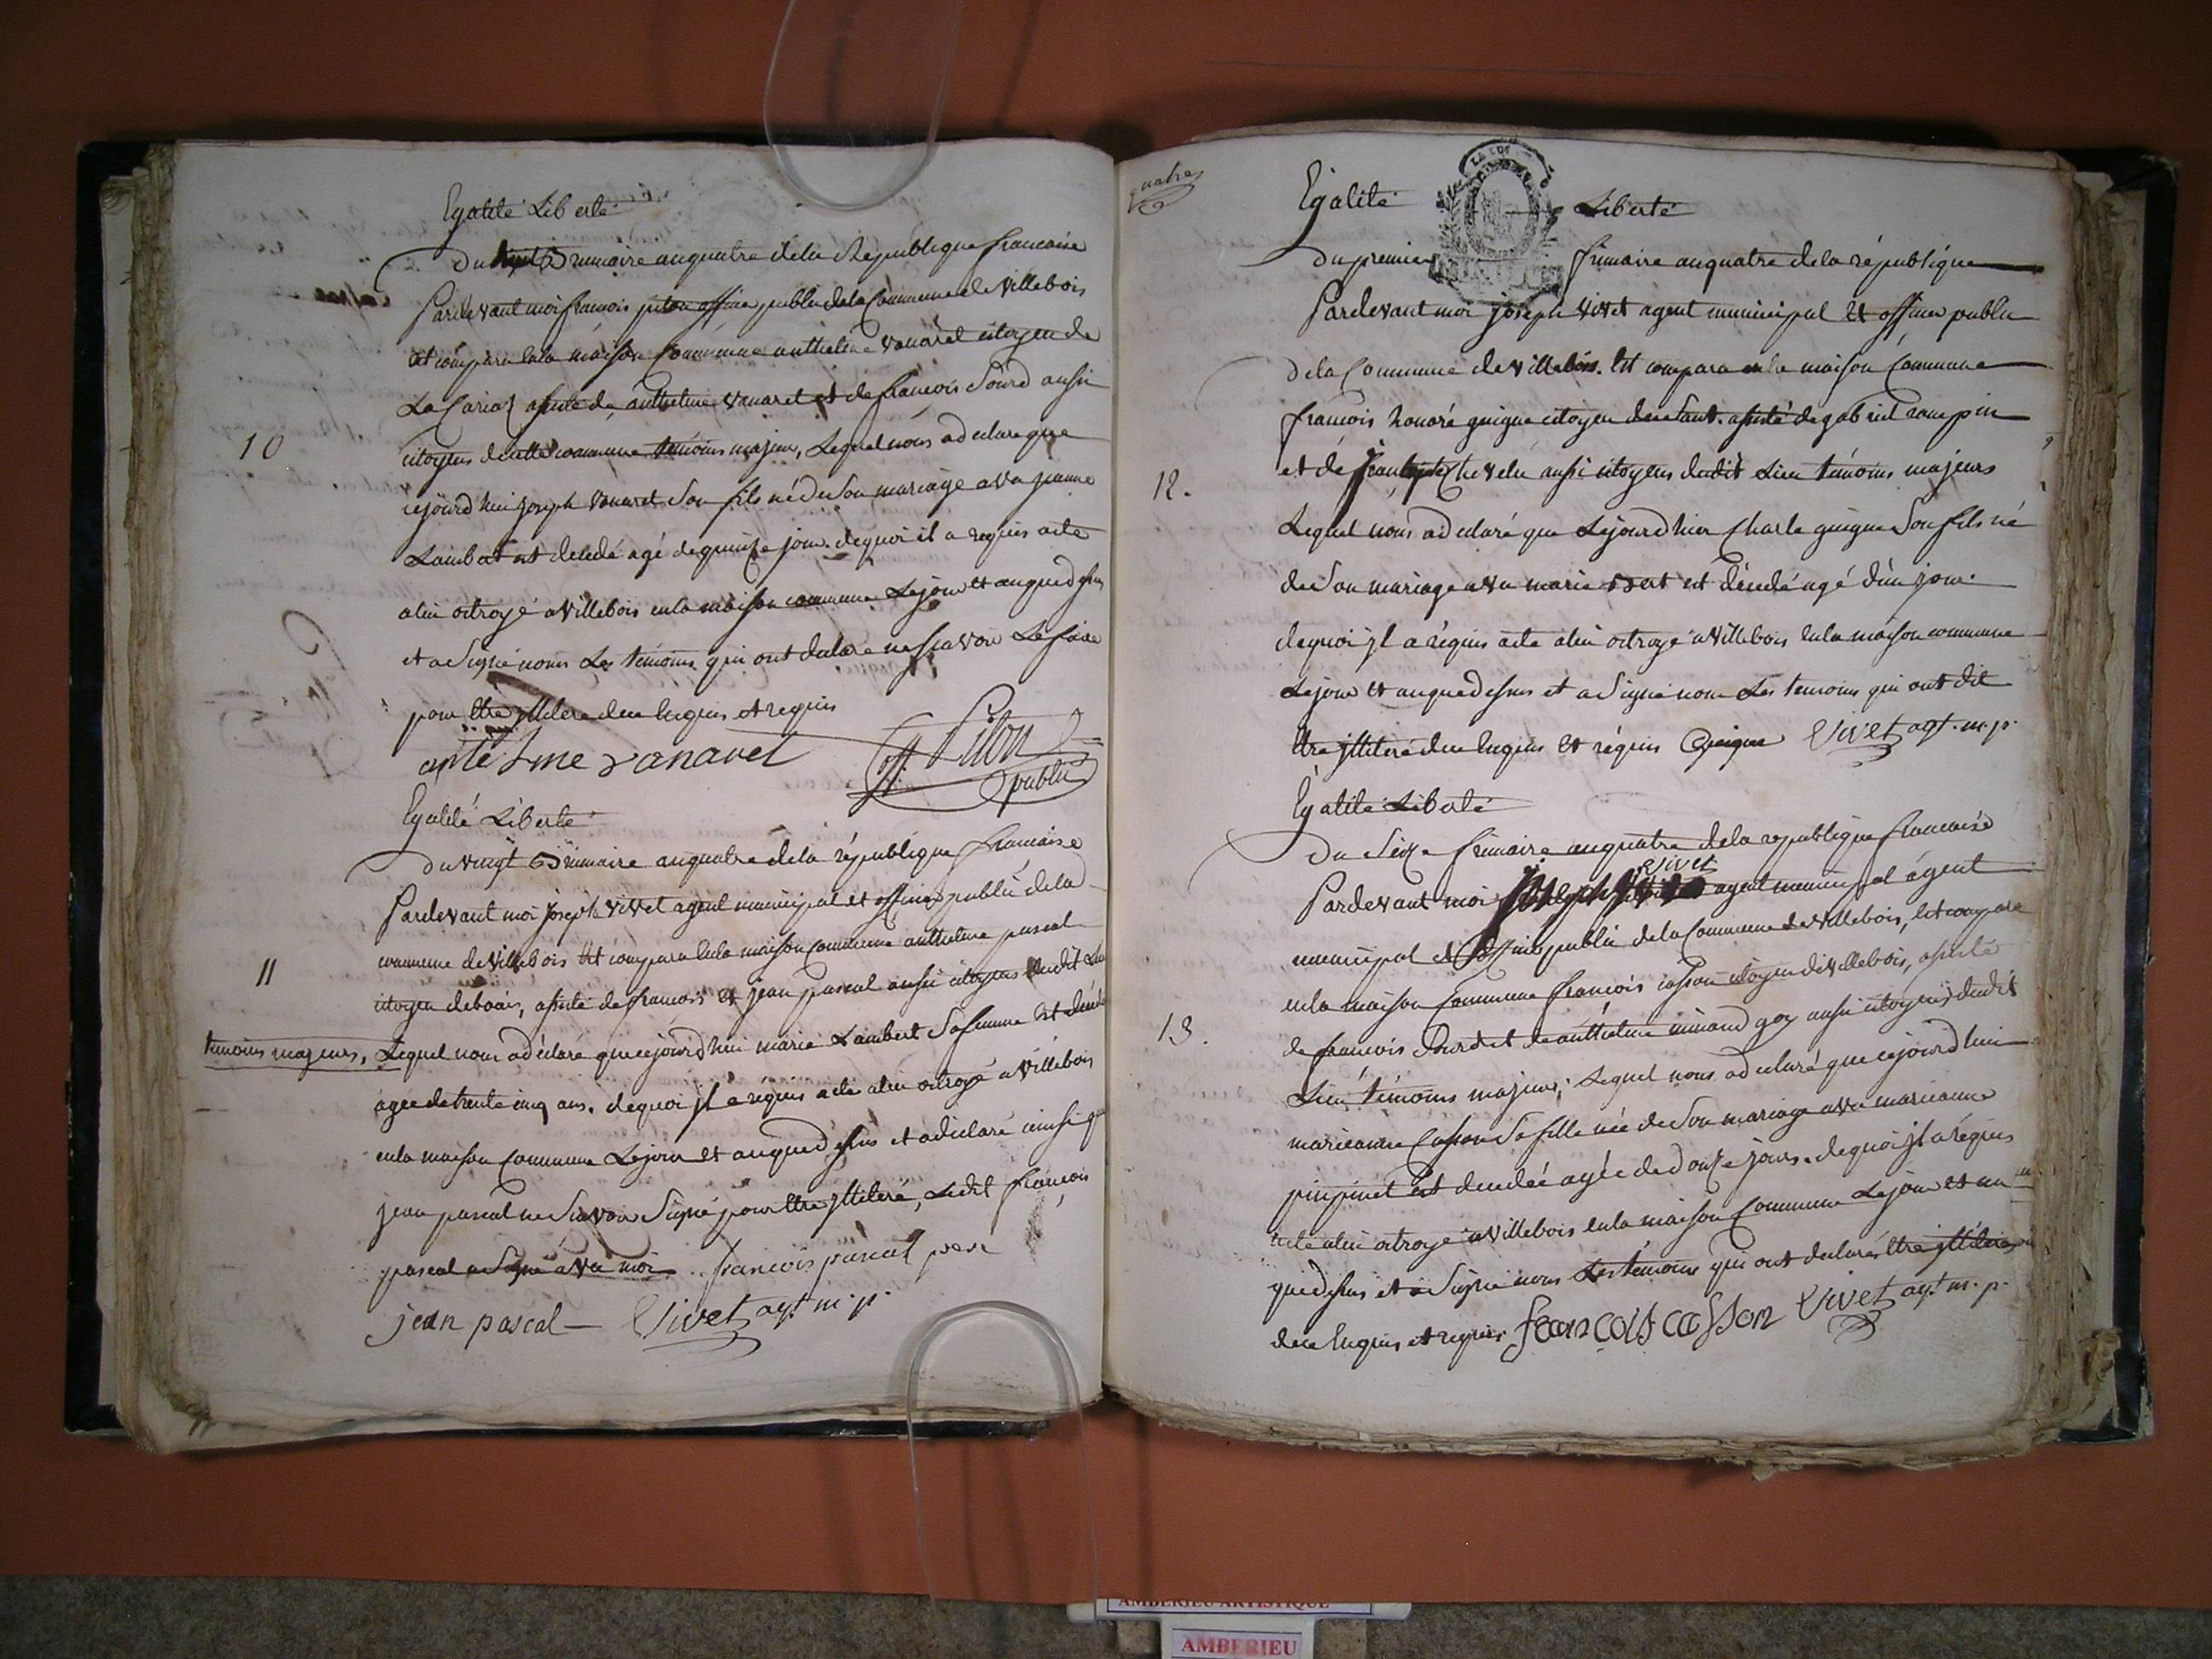 Egalité Liberté
Du huit Brumaire an quatre dela République francaise
Pardevant moi francois pilon officier public dela Commune de Villebois
est comparu enla maison Commune anthelme vanarel citoyen de
La Cariaz assisté de anthelme vanarel et de francois Sourd aussi
10
citoyens decette commune témoins majeurs, Lequel nous adeclare que
cejourd'hui joseph vanarel Son fils né de Son mariage avec jeanne
Lambert est decedé agé de quinze jours. dequoi il a requis acte
alui octroyé a Villebois enla maison commune Le jour et an que dessus
et a Signé nonis Les témoins qui ont declare ne scavoir Le faire
pour être illiteré dece Enquis et requis
antelme vanarel Pilon
off. public
Egalité Liberté
du vingt Brumaire an quatre dela république francaise
Pardevant moi joseph vivet agent municipal et officier public dela
commune de Villebois Est comparu enla maison commune anthelme pascal
11
citoyen de bouis, assisté de francois et jean pascal aussi citoyens dudit Lieu
temoins majeurs, Lequel nous adéclaré que cejourd'hui marie Lambert Sa femme Est décedé
agee de trente cinq ans. dequoi jl a requis acte alui octroyé a Villebois
enla maison Commune Le jour et an que dessus et adeclaré ainsi que
jean pascal ne Scavoir Signé pour être jlliteré, Ledit francois
pascal a Signé avec moi. francois pascal pere
jean pascal Vivet agt. m. p.
quatre
Egalité Liberté
LA LOI
Du premier frimaire an quatre dela république
Pardevant moi joseph vivet agent municipal Et officier public
dela Commune de Villebois. Est comparu enla maison Commune
francois honoré guigue citoyen de assisté de gabriel rampin
et de chevelu aussi citoyens dudit Lieu témoins majeurs
12.
Lequel nous adclaré que Lejourd'hier Charle guigue Son fils né
de Son mariage avec marie est décedé agé d'un jour.
dequoi jl a requis acte alui octroyé a Villebois Enla maison commune
Le jour et an que dessus et a Signé nonis Les temoins qui ont dit
être jlliteré dece Enquis Et réquis Guigue Vivet agt. m. p.
Egalité Liberté
Du Seize frimaire an quatre dela republique francaise
Vivet
Pardevant moi joseph agent municipal agent
municipal et officier public dela Commune de Villebois, Est comparu
enla maison Commune francois casson citoyen de Villebois, assisté
13.
de francois Sourd et de anthelme minand goy aussi citoyens dudit
Lieu témoins majeurs; Lequel nous adeclaré que cejourd'hui
marieanne Casson Sa fille née de Son mariage avec marieanne
pinpinet Est decedée agée de douze jours. dequoi jl a réquis
acte alui octroyé a Villebois Enla maison Commune Le jour et an
que dessus et a Signé nonis Les témoins qui ont declarés être jlliterés
dece Enquis et requis. francois casson Vivet agt. m. p.
AMBERIEU ARTISTIQUE
AMBERIEU